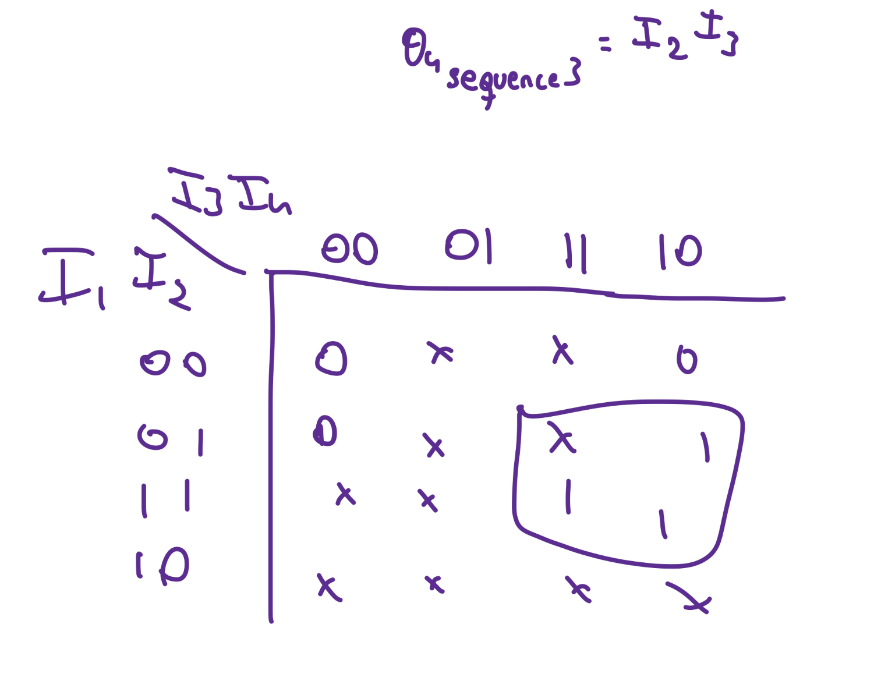 θ₄ sequence3 = I₂ I₃
I₃ I₄
I₁ I₂ 00 01 11 10
00 0 x x 0
01 0 x x 1
11 x x 1 1
10 x x x x